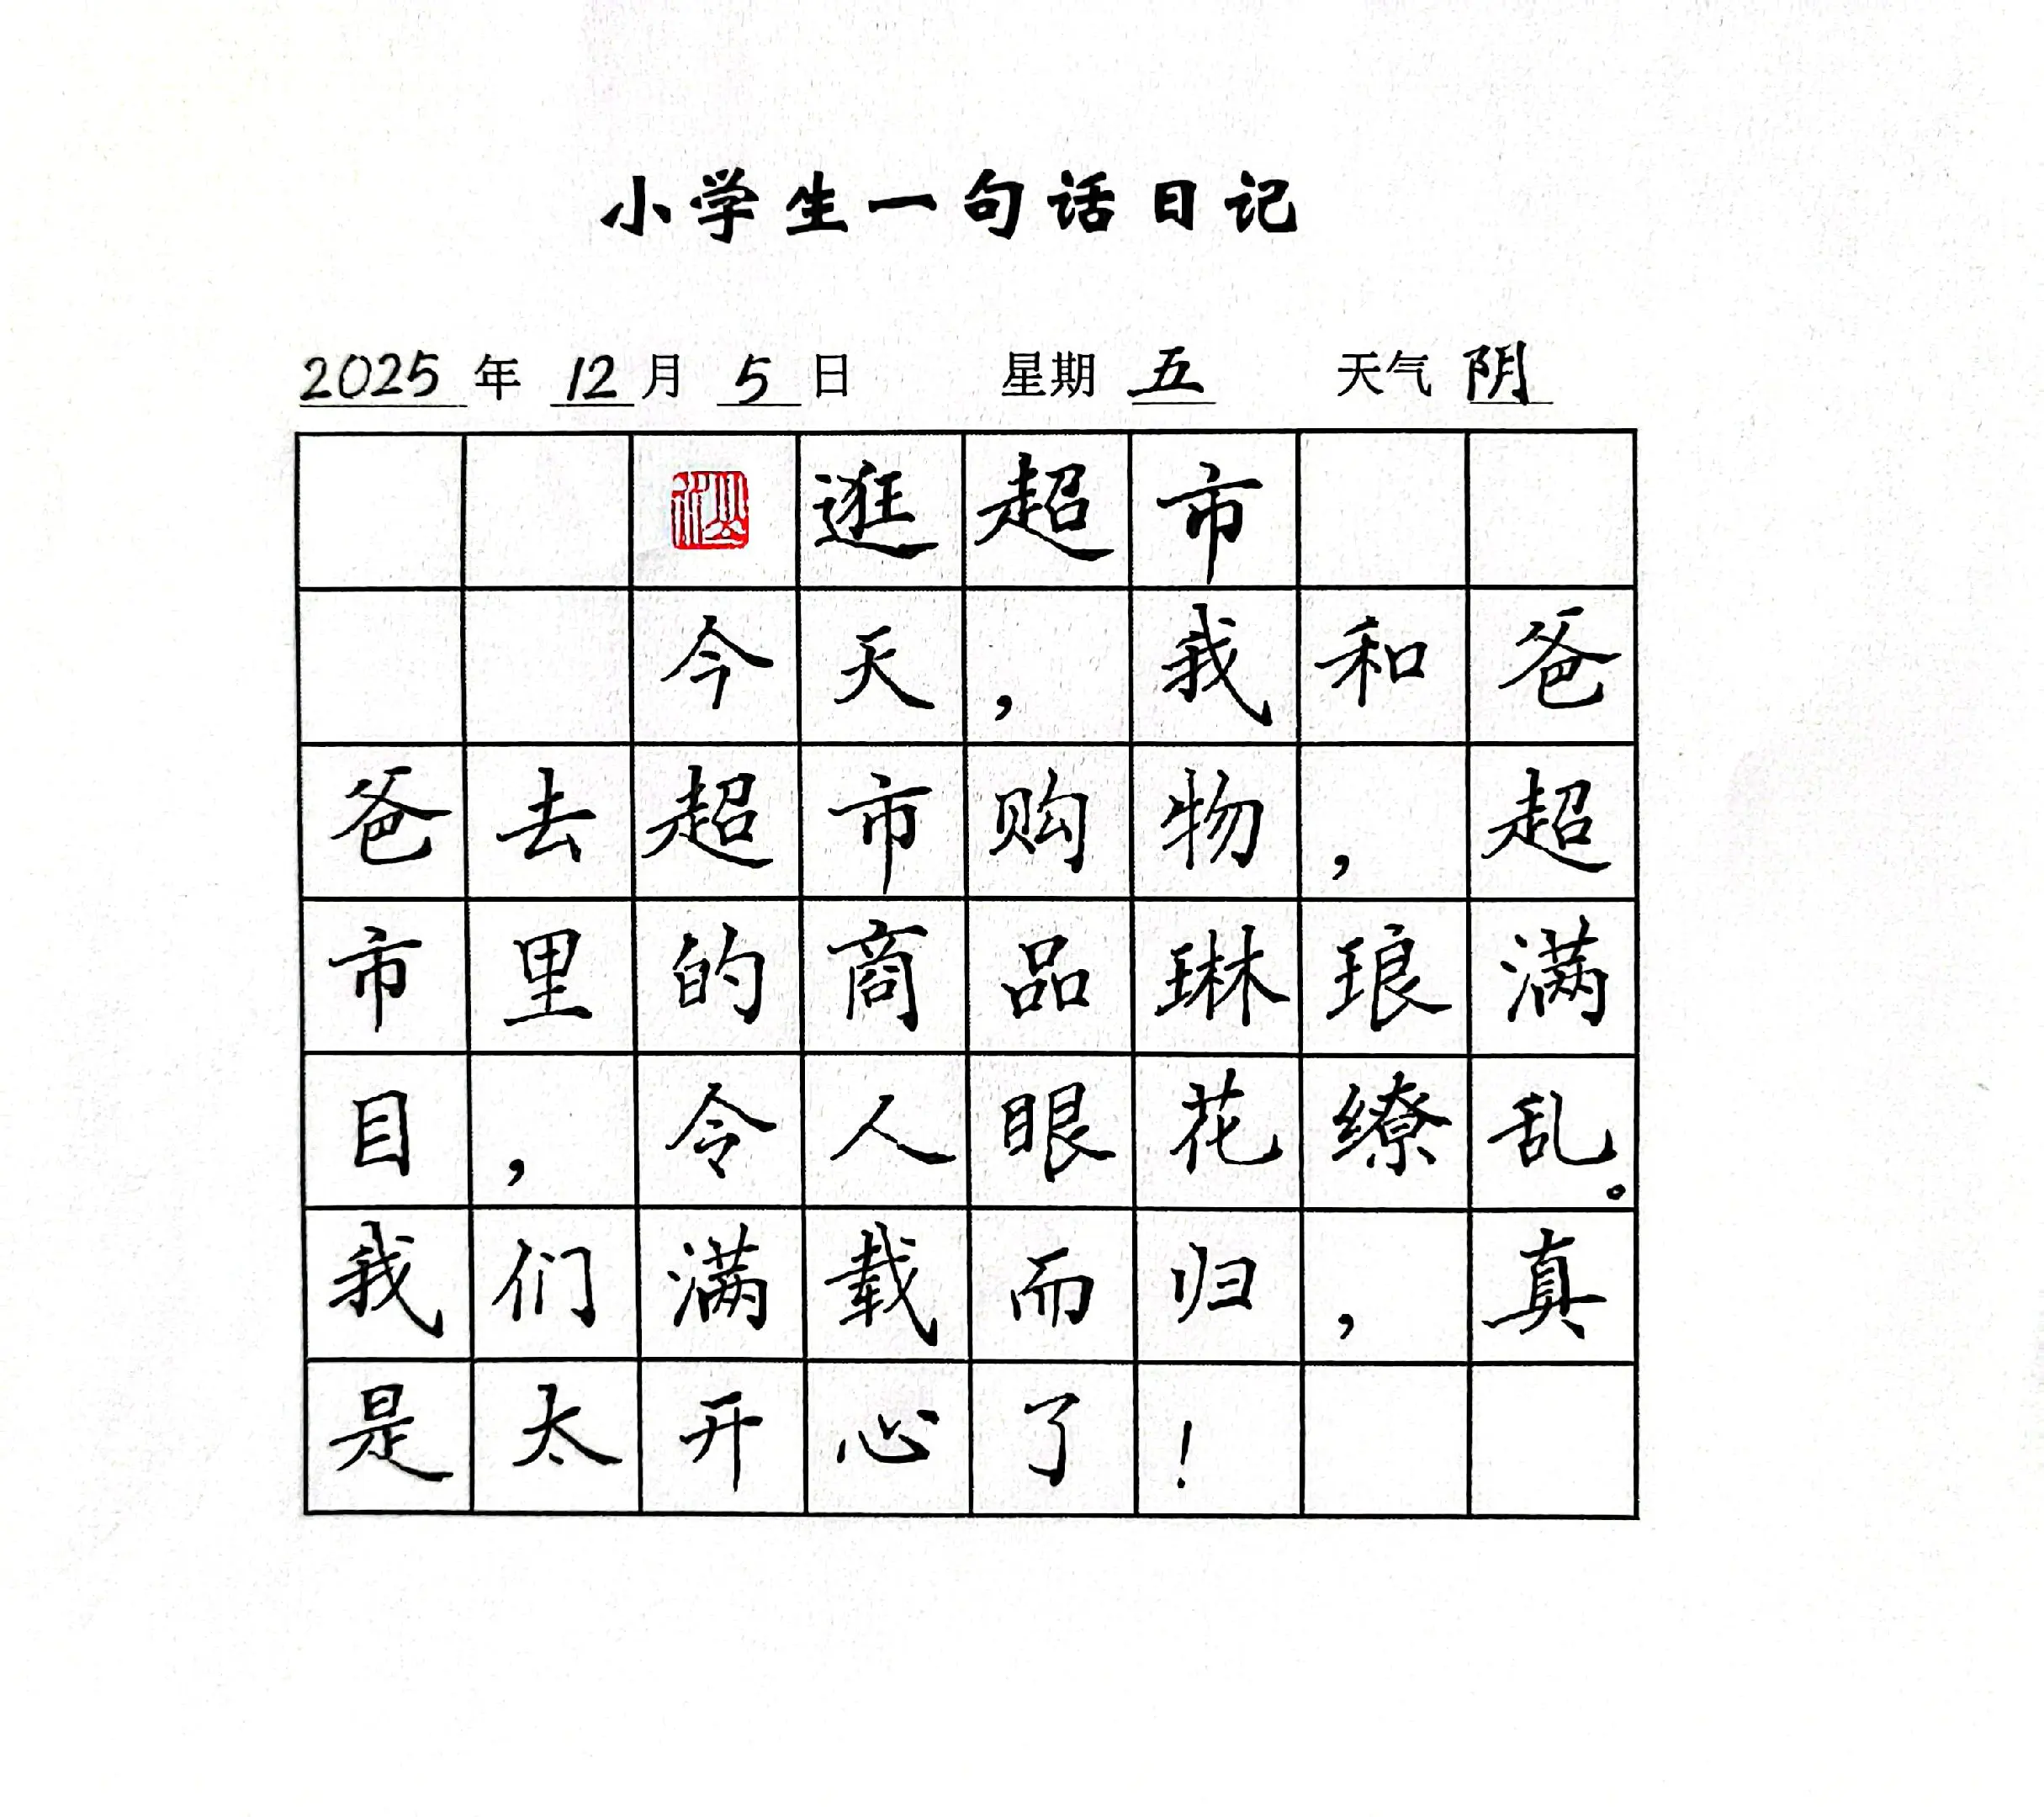 小学生一句话日记
2025年 12月 5日 星期 五 天气 阴
逛超市
今天，我和爸
爸去超市购物，超
市里的商品琳琅满
目，令人眼花缭乱。
我们满载而归，真
是太开心了！